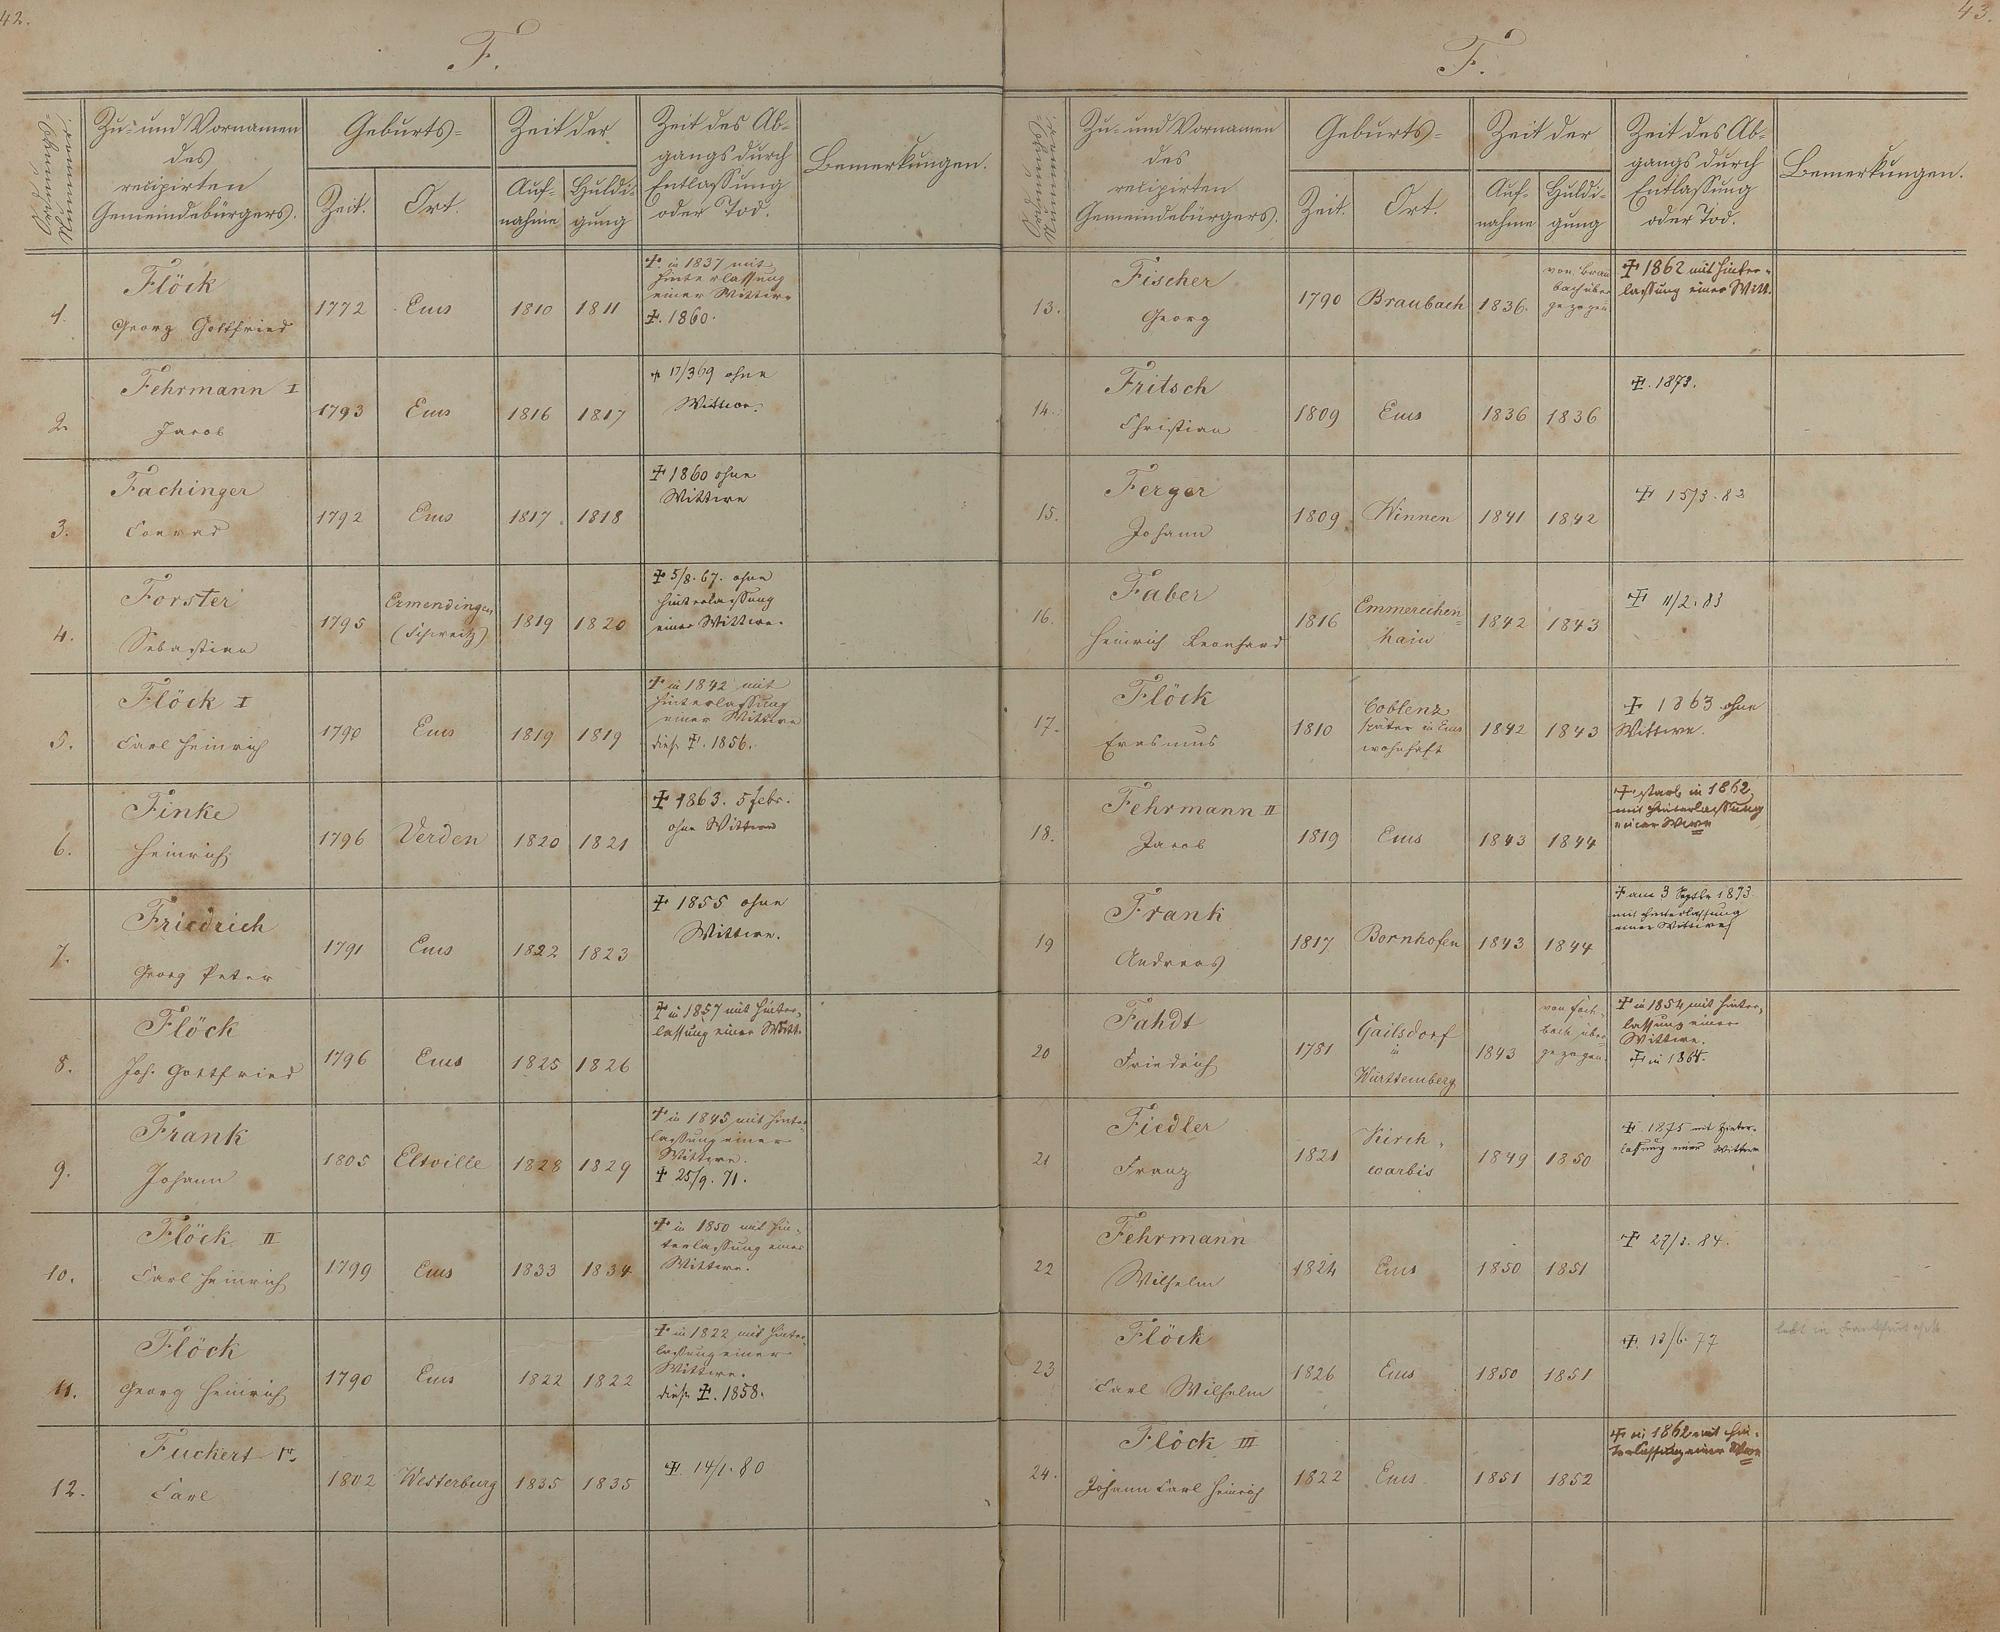 42.
F.
Ordnungs-
Nummer.
Zu- und Vornamen
des
recipirten
Gemeindebürgers.
Geburts-
Zeit.
Ort.
Zeit der
Auf-
nahme
Huldi-
gung
Zeit des Ab-
gangs durch
Entlassung
oder Tod.
Bemerkungen.
1.
Flöck
Georg Gottfried
1772
Ems
1810
1811
† in 1837 mit
Hinterlassung
einer Wittwe
†. 1860.
2.
Fehrmann I
Jacob
1793
Ems
1816
1817
† 17/3 69 ohne
Wittwe.
3.
Fachinger
Conrad
1792
Ems
1817
1818
† 1860 ohne
Wittwe
4.
Forster
Sebastian
1795
Ermendingen
(Schweitz)
1819
1820
† 5/8. 67. ohne
Hinterlassung
einer Wittwe.
5.
Flöck I
Carl Heinrich
1790
Ems
1819
1819
† in 1842 mit
Hinterlassung
einer Wittwe
diese †. 1856.
6.
Finke
Heinrich
1796
Verden
1820
1821
† 1863. 5 Febr.
ohne Wittwe
7.
Friedrich
Georg Peter
1791
Ems
1822
1823
† 1855 ohne
Wittwe.
8.
Flöck
Joh. Gottfried
1796
Ems
1825
1826
† in 1857 mit Hinter-
lassung einer Wittw.
9.
Frank
Johann
1805
Eltville
1828
1829
† in 1845 mit Hinter-
lassung einer
Wittwe.
† 25/9. 71.
10.
Flöck II
Carl Heinrich
1799
Ems
1833
1834
† in 1850 mit Hin-
terlassung einer
Wittwe.
11.
Flöck
Georg Heinrich
1790
Ems
1822
1822
† in 1822 mit Hinter-
lassung einer
Wittwe.
diese †. 1858.
12.
Fuckert 1r.
Carl
1802
Westerburg
1835
1835
†. 14/1. 80
43.
F.
Ordnungs-
Nummer.
Zu- und Vornamen
des
recipirten
Gemeindebürgers.
Geburts-
Zeit.
Ort.
Zeit der
Auf-
nahme
Huldi-
gung
Zeit des Ab-
gangs durch
Entlassung
oder Tod.
Bemerkungen.
13.
Fischer
Georg
1790
Braubach
1836.
von Brau
bach über
gezogen
† 1862 mit Hinter-
lassung einer Witt.
14.
Fritsch
Christian
1809
Ems
1836
1836
†. 1873.
15.
Ferger
Johann
1809
Winnen
1841
1842
† 15/3. 82
16.
Faber
Heinrich Leonhard
1816
Emmerichen-
hain
1842
1843
† 11/2. 83
17.
Flöck
Erasmus
1810
Coblenz
später in Ems
wohnhaft
1842
1843
† 1863 ohne
Wittwe.
18.
Fehrmann II
Jacob
1819
Ems
1843
1844
† starb in 1862
mit Hinterlassung
einer Wwe
19
Frank
Andreas
1817
Bornhofen
1843
1844
† am 3 Septbr 1873
mit Hinterlassung
einer Wittwe
20
Fahdt
Friedrich
1781
Gailsdorf
in
Württemberg
1843
von Fach-
bach über-
gezogen.
† in 1854 mit Hinter-
lassung einer
Wittwe.
† in 1864.
21
Fiedler
Franz
1821
Kirch-
worbis
1849
1850
†. 1875 mit Hinter-
lassung einer Wittwe
22
Fehrmann
Wilhelm
1824
Ems
1850
1851
† 27/3. 84.
23
Flöck
Carl Wilhelm
1826
Ems
1850
1851
†. 13/6. 77
lebt in Frankfurt
24.
Flöck III
Johann Carl Heinrich
1822
Ems
1851
1852
† in 1862 mit Hin-
terlassung einer Wwe